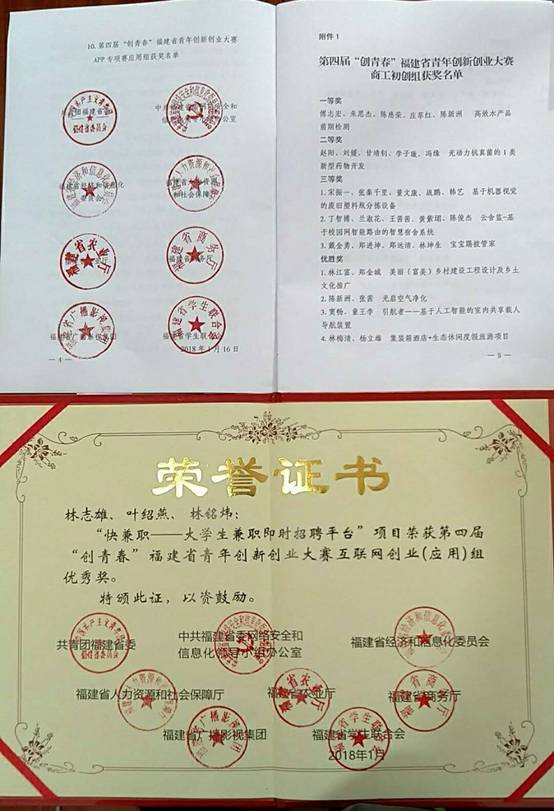 10.第四届“创青春”福建省青年创新创业大赛
APP专项赛应用组获奖名单
2018年1月16日
— 4 —
附件1
第四届“创青春”福建省青年创新创业大赛
商工初创组获奖名单
一等奖
傅志宏、朱思杰、陈德荣、庄草红、陈新洲 高效水产品
前期检测
二等奖
赵阳、刘媛、甘靖钊、李子璇、冯缘 无动力抗真菌的1类
新型药物开发
三等奖
1.宋振一、张秦千里、董文康、战鹏、韩艺 基于机器视觉
的废旧塑料瓶分拣设备
2.丁智博、兰淑花、王茜茜、黄紫珺、陈俊杰 云舍监-基
于校园网智能路由的智慧宿舍系统
3.戴金勇、郑进坤、郑远清、林坤生 宝宝踢被管家
优胜奖
1.林江富、郑金诚 美丽（富美）乡村建设工程设计及乡土
文化推广
2.陈新洲、张茜 光启空气净化
3.窦畅、童王李 引航者——基于人工智能的室内共享载人
导航装置
4.林梅清、杨立雄 集装箱酒店+生态休闲度假旅游项目
— 5 —
荣誉证书
林志雄、叶绍燕、林铭炜：
“快兼职——大学生兼职即时招聘平台”项目荣获第四届
“创青春”福建省青年创新创业大赛互联网创业(应用)组
优秀奖。
特颁此证，以资鼓励。
共青团福建省委
中共福建省委网络安全和
信息化领导小组办公室
福建省经济和信息化委员会
福建省人力资源和社会保障厅
福建省农业厅
福建省商务厅
福建省广播影视集团
福建省学生联合会
2018年1月